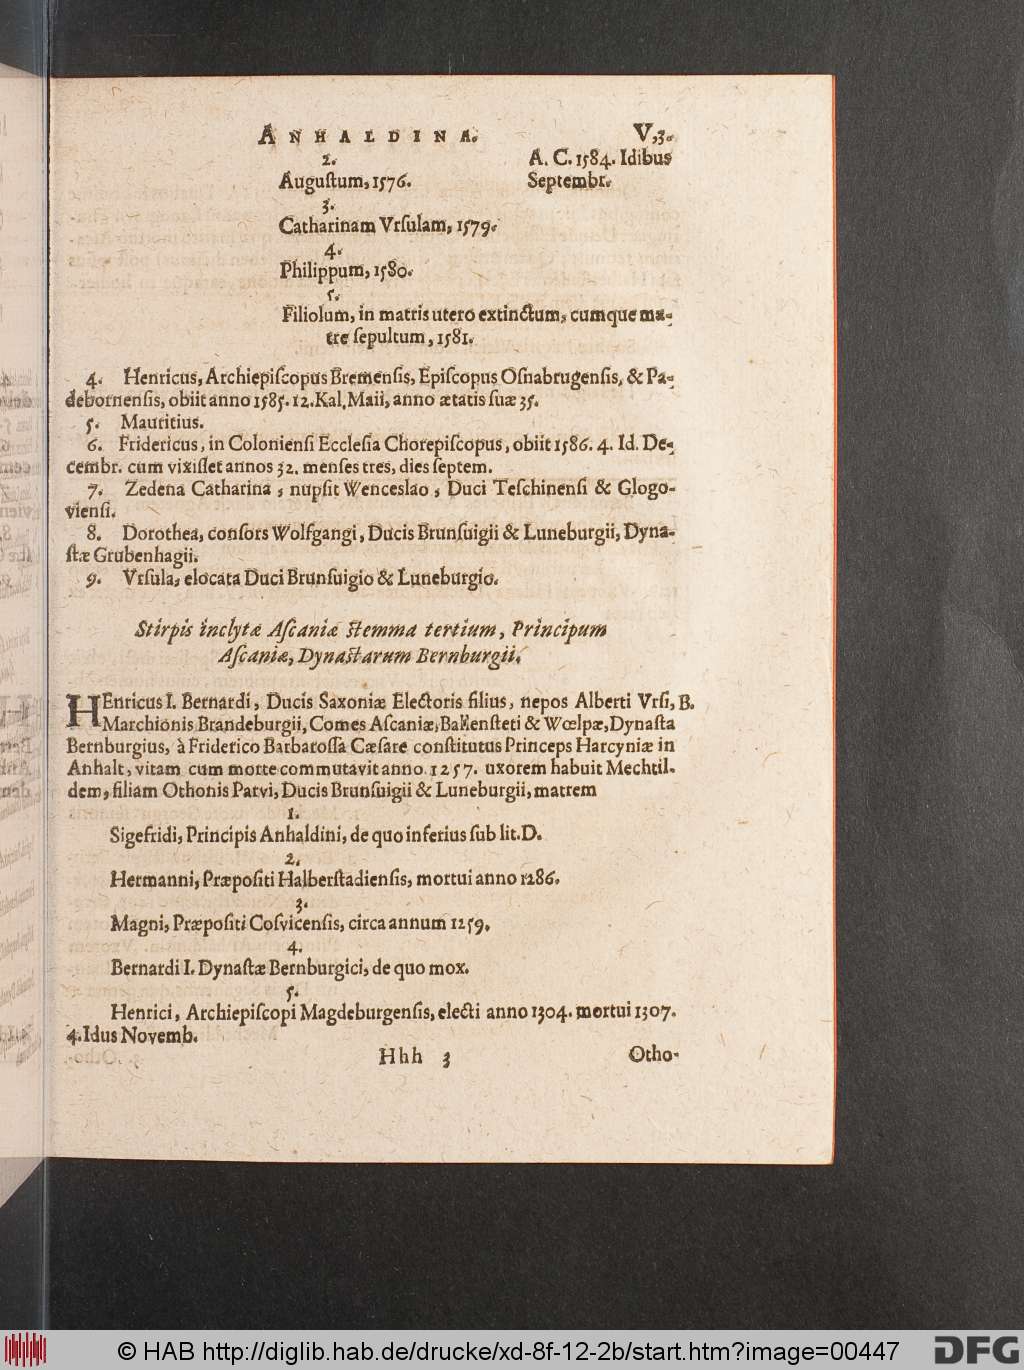 ANHALDINA. V,3.
2.
Auguſtum, 1576.
A. C. 1584. Idibus
Septembr.
3.
Catharinam Vrſulam, 1579.
4.
Philippum, 1580.
5.
Filiolum, in matris utero extinctum, cumque ma-
tre ſepultum, 1581.
4. Henricus, Archiepiſcopus Bremenſis, Epiſcopus Oſnabrugenſis, & Pa-
debornenſis, obiit anno 1585. 12. Kal. Maii, anno ætatis ſuæ 35.
5. Mauritius.
6. Fridericus, in Colonienſi Eccleſia Chorepiſcopus, obiit 1586. 4. Id. De-
cembr. cum vixiſſet annos 32. menſes tres, dies ſeptem.
7. Zedena Catharina, nupſit Wenceslao, Duci Teſchinenſi & Glogo-
vienſi.
8. Dorothea, conſors Wolfgangi, Ducis Brunſuigii & Luneburgii, Dyna-
ſtæ Grubenhagii.
9. Vrſula, elocata Duci Brunſuigio & Luneburgio.
Stirpis inclytæ Aſcaniæ ſtemma tertium, Principum
Aſcaniæ, Dynaſtarum Bernburgii.
HEnricus I. Bernardi, Ducis Saxoniæ Electoris filius, nepos Alberti Vrſi, B.
Marchionis Brandeburgii, Comes Aſcaniæ, Ballenſteti & Wœlpæ, Dynaſta
Bernburgius, à Friderico Barbaroſſa Cæſare conſtitutus Princeps Harcyniæ in
Anhalt, vitam cum morte commutavit anno 1257. uxorem habuit Mechtil-
dem, filiam Othonis Parvi, Ducis Brunſuigii & Luneburgii, matrem
1.
Sigefridi, Principis Anhaldini, de quo inferius ſub lit. D.
2.
Hermanni, Præpoſiti Halberſtadienſis, mortui anno 1286.
3.
Magni, Præpoſiti Coſvicenſis, circa annum 1259.
4.
Bernardi I. Dynaſtæ Bernburgici, de quo mox.
5.
Henrici, Archiepiſcopi Magdeburgenſis, electi anno 1304. mortui 1307.
4. Idus Novemb.
Hhh 3 Otho-
© HAB http://diglib.hab.de/drucke/xd-8f-12-2b/start.htm?image=00447
DFG